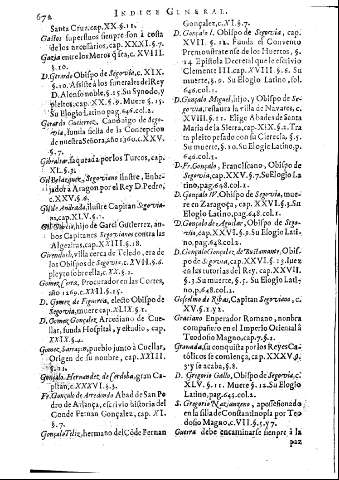 672 INDICE GENERAL.
Santa Cruz, cap. XX. §. 11.
Gastos superfluos siempre son à costa
de los necesarios, cap. XXXI. §. 7.
Gazia entre los Moros qué era, c. XVIII
§. 10.
D. Gerardo Obispo de Segovia, c. XIX.
§. 10. Assiste à los funerales del Rey
D. Alonso noble, §. 15. Su Synodo, y
pleitos, cap. XX. §. 9. Muere §. 15.
Su Elogio Latino pag. 646. col. 2.
Gerardo Gutierrez, Canonigo de Sego-
via, funda fiesta de la Concepcion
de nuestra Señora, año 1360. c. XXV.
§. 7.
Gibraltar, saqueada por los Turcos, cap.
XL. §. 3.
Gil Velazquez, Segoviano ilustre, Enba-
jador à Aragon por el Rey D. Pedro,
c. XXV. §. 6.
Gil de Andrada, ilustre Capitan Segovia-
no, cap. XLV. §. 1.
Gil García, hijo de Garci Gutierrez, an-
bos Capitanes Segovianos contra las
Algeziras, cap. XXIII. §. 18.
villa cerca de Toledo, era de
los Obispos de Segovia c. XVII. §. 6.
pleyto sobre ella, c. XX. §. 2.
Gomez, Procurador en las Cortes,
año 1269. c. XXII. §. 15.
D. Gomez de Figueroa, electo Obispo de
Segovia, muere cap. XLIX. §. 1.
D. Gomez Gonçalez, Arcediano de Cue-
llar, funda Hospital, y estudio, cap.
XXIX. §. 4.
Gomez, pueblo junto à Cuellar,
Origen de su nombre, cap. XXIII.
§. 21.
Gonçalo Hernandez de Cordoba, gran Ca-
pitan, c. XXXVI. §. 3.
Fr. Gonçalo de Arredondo Abad de San Pe-
dro de Arlança, escrivio historia del
Conde Fernan Gonçalez, cap. XI.
§. 7.
Gonçalo Telez, hermano del Cõde Fernan
Gonçalez, c. XI. §. 7.
D. Gonçalo I. Obispo de Segovia, cap.
XVII. §. 12. Funda el Convento
Premonstratense de los Huertos, §.
14. Epistola Decretal que le escrivio
Clemente III. cap. XVIII. §. 6. Su
muerte, §. 9. Su Elogio Latino, fol.
646. col. 1.
D. Gonçalo Miguel, hijo, y Obispo de Se-
govia, restaura la villa de Navares, c.
XVIII. §. 11. Elige Abades de Santa
Maria de la Sierra, cap. XIX. §. 2. Tra
ta pleito pesado con su Clerecia, §. 5.
Su muerte, §. 10. Su Elogio Latino, p.
646. col. 1.
D. Fr. Gonçalo, Franciscano, Obispo de
Segovia, cap. XXV. §. 7. Su Elogio La-
tino, pag. 648. col. 1.
D. Gonçalo IV. Obispo de Segovia, mue-
re en Zaragoça, cap. XXVI. §. 3. Su
Elogio Latino, pag. 648. col. 1.
D. Gonçalo de Aguilar, Obispo de Sego-
via, cap. XXVI. §. 3. Su Elogio Lati-
no, pag. 648. col. 1.
D. Gonçalo Gonçalez de Bustamante, Obis-
po de Segovia, cap. XXVI. §. 13. Juez
en las tutorias del Rey, cap. XXVII.
§. 3. Su muerte, §. 5. Su Elogio Lati-
no, p. 648. col. 1.
Goselmo de Ribas, Capitan Segoviano, c.
XV. §. 1. y 2.
Graciano Emperador Romano, nonbra
compañero en el Imperio Oriental à
Teodosio Magno, cap. 7. §. 2.
Granada, su conquista por los Reyes Ca-
tolicos se comiença, cap. XXXV. §.
3. y se acaba, §. 8.
D. Gregorio Gallo, Obispo de Segovia, c.
XLV. §. 11. Muere §. 12. Su Elogio
Latino, pag. 651. col. 2.
S. Gregorio Nazianzeno, aposesionado
en la silla de Constantinopla por Teo-
dosio Magno, c. VII. §. 5. y 7.
Guerra debe encaminarse siempre à la
paz